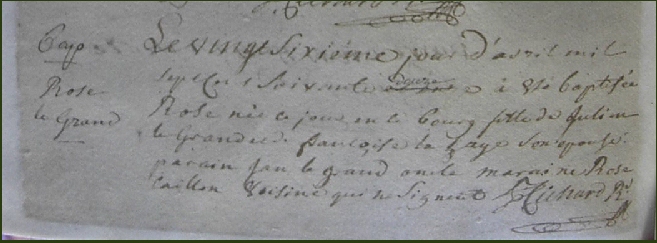 Bap
Rose
le Grand
Le vingt Sixiéme jour d'avril mil
sept cens Soixante douze à été baptisée
Rose née ce jour en ce bourg fille de julien
le Grand et de francoise la haye Son epouse
parain jan le grand oncle maraine Rose
Caillon Voisine qui ne Signent Richard Rr